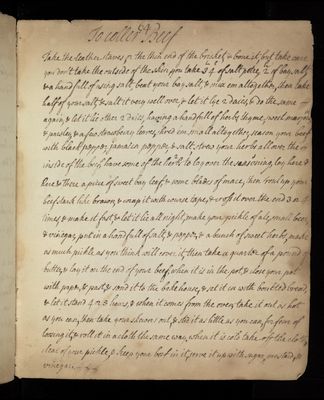 To coller Beef
Take the leather staves or the thin end of the brisket & bone it, but take care
you don't take the outside of the skin, you take of salt petre, of bay salt,
& a hand full of using salt, beat your bay salt, & mix em altogether, then take
half of your salt, & salt it very well over, & let it lye 2 daies, & do the same
again, & let it lie other 2 daies, having a handfull of herbs, thyme, sweet marjoram
& parsley, & a few strawberry leaves, shred em small altogether, season your beef
with black pepper, jamaica pepper, & salt, strew your herbs all over the
inside of the beef, have some of the herbs to lay over the seasoning, lay here &
there & there a piece of sweet bay leaf, & some blades of mace, then roul up your
beef stark like brawn, & wrap it with course tape, & crose it over the end 3 or 4
times, & make it fast, & let it lie all night, make your pickle of ale, small beer,
& vinegar, put in a handfull of salt, & pepper, & a bunch of sweet herbs, make
as much pickle as you think will cover it, then take a quarter of a pound of
butter, & lay it on the end of your beef when it is in the pot, & close your pot
with paper, & past, & send it to the bake house, & set it in with houshold bread,
& let it stand 4 or 5 hours, & when it comes from the oven, take it out as hot
as you can, then take your skewers out, & stir it as little as you can, for fear of
loosing it, & roll it in a cloth the same way, when it is cold take off the cloth,
clear of your pickle, & keep your beef in it, serve it up with sugar, mustard, &
vinegar